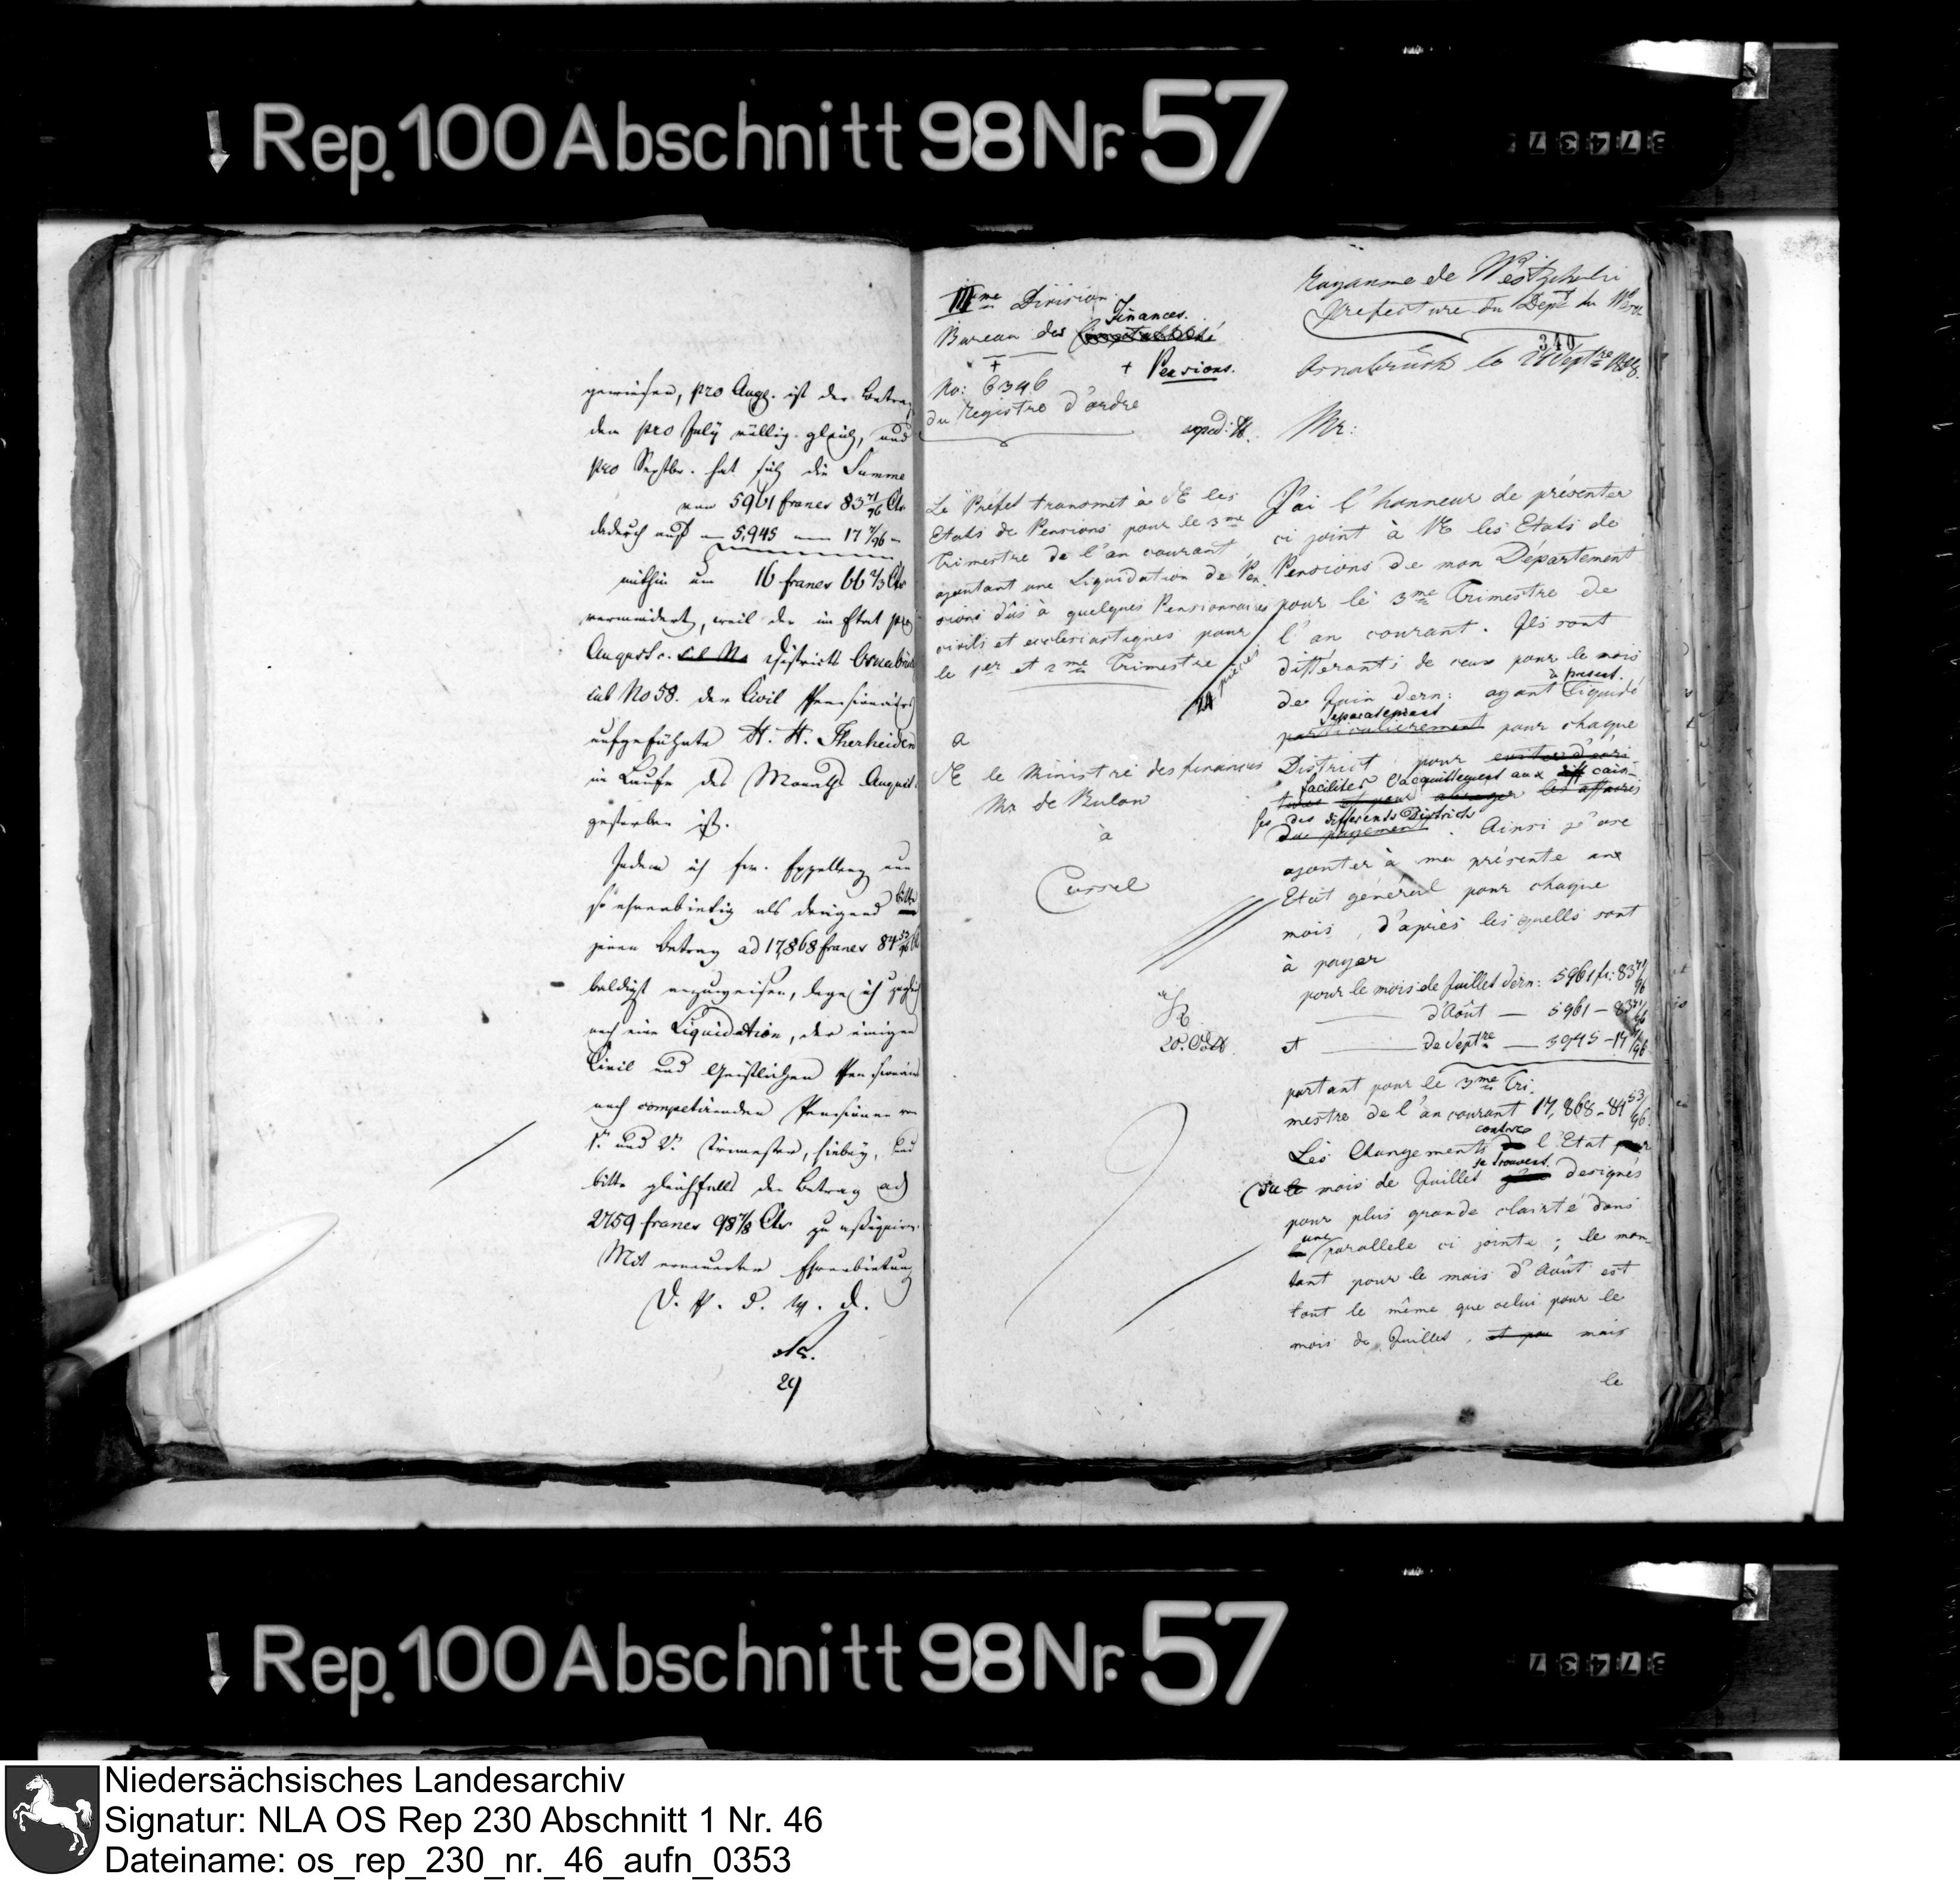 Rep. 100 Abschnitt 98 Nr. 57
gewiesen, pro Aug. ist der Betrag
dem pro July völlig gleich, und
pro Septbr. hat sich die Summe
von 5961 francs 83 71/96 Cts
dadurch auf — 5,945 — 17 7/96 —
mithin um 16 francs 66 2/3 Cts
vermindert, weil der im Etat pro
August c. sub No Districts Osnabrück
sub No 58. der Civil Pensionairs
aufgeführte H. H. Therheiden
im Laufe des Monaths August
gestorben ist.
Indem ich Ew. Excellenz nun
so ehrerbietig als dringend bitte
jenen Betrag ad 17,868 francs 84 53/96 Cts
baldigst anzuweisen, lege ich zugleich
noch eine Liquidation, der einigen
Civil und Geistlichen Pensionairs
noch competirenden Pensionen vom
1. und 2. Trimester, hiebey, und
bitte gleichfalls den Betrag ad
2759 francs 98 7/8 Cts zu assigniren.
Mit erneuerter Ehrerbietung
D. P. d. W. D.
29
IIIme Division
Bureau des Comptabilité Finances.
+ + Pensions.
No: 6346
du Registre d'ordre
exped:
Le Préfet transmet à SE les
Etats de Pensions pour le 3me
Trimestre de l'an courant
ajoutant une Liquidation de Pen
sions dûs à quelques Pensionnaires
civils et ecclesiastiques pour
le 1er et 2me Trimestre
24 pièces
a
SE le Ministre des finances
Mr de Bulow
à
Cassel
Royaume de Westphalie
Prefecture du Dept du Weser
340
Osnabrück le Septre 1808.
Mr:
J'ai l'honneur de présenter
ci joint à VE les Etats de
Pensions de mon Département
pour le 3me Trimestre de
l'an courant. Ils sont
différents de ceux pour le mois
à present.
de Juin dern: ayant liquidé
separatement
particulierement pour chaque
District pour
faciliter l'acquittement aux cais-
et pour abreger les affaires
ses des differents Districts
du payement. Ainsi j'ose
ajouter à ma présente aux
Etat général pour chaque
mois, d'après les quells sont
à payer
pour le mois de Juillet dern: 5961 fr: 83 71/96
d'Aôut — 5961 – 83 71/96
et — de Septre — 5945 – 17 7/96
partant pour le 3me Tri:
mestre de l'an courant 17,868 – 84 53/96.
contre
Les Changements de l'Etat pour
se trouvent
du le mois de Juillet designés
pour plus grande clairté dans
une
la parallele ci jointe; le mon-
tant pour le mois d'Août est
tout le même que celui pour le
mois de Juillet, et pou mais
le
Rep. 100 Abschnitt 98 Nr. 57
Niedersächsisches Landesarchiv
Signatur: NLA OS Rep 230 Abschnitt 1 Nr. 46
Dateiname: os_rep_230_nr._46_aufn_0353